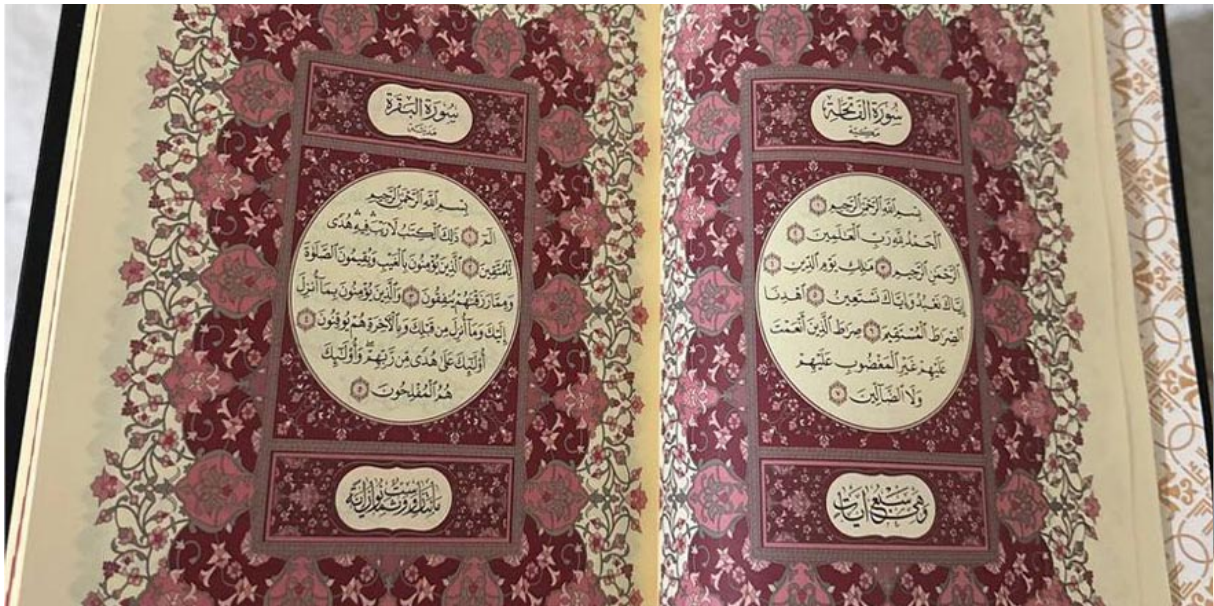 سُورَةُ الفَاتِحَةِ
مَكِّيَّة
بِسْمِ ٱللَّهِ ٱلرَّحْمَٰنِ ٱلرَّحِيمِ ١
ٱلْحَمْدُ لِلَّهِ رَبِّ ٱلْعَٰلَمِينَ ٢
ٱلرَّحْمَٰنِ ٱلرَّحِيمِ ٣ مَٰلِكِ يَوْمِ ٱلدِّينِ ٤
إِيَّاكَ نَعْبُدُ وَإِيَّاكَ نَسْتَعِينُ ٥ ٱهْدِنَا
ٱلصِّرَٰطَ ٱلْمُسْتَقِيمَ ٦ صِرَٰطَ ٱلَّذِينَ أَنْعَمْتَ
عَلَيْهِمْ غَيْرِ ٱلْمَغْضُوبِ عَلَيْهِمْ
وَلَا ٱلضَّآلِّينَ ٧
وَهِيَ سَبْعُ آيَاتٍ
سُورَةُ البَقَرَةِ
مَدَنِيَّة
بِسْمِ ٱللَّهِ ٱلرَّحْمَٰنِ ٱلرَّحِيمِ
الٓمٓ ١ ذَٰلِكَ ٱلْكِتَٰبُ لَا رَيْبَ ۛ فِيهِ ۛ هُدًى
لِّلْمُتَّقِينَ ٢ ٱلَّذِينَ يُؤْمِنُونَ بِٱلْغَيْبِ وَيُقِيمُونَ ٱلصَّلَوٰةَ
وَمِمَّا رَزَقْنَٰهُمْ يُنفِقُونَ ٣ وَٱلَّذِينَ يُؤْمِنُونَ بِمَآ أُنزِلَ
إِلَيْكَ وَمَآ أُنزِلَ مِن قَبْلِكَ وَبِٱلْءَاخِرَةِ هُمْ يُوقِنُونَ ٤
أُو۟لَٰٓئِكَ عَلَىٰ هُدًى مِّن رَّبِّهِمْ ۖ وَأُو۟لَٰٓئِكَ
هُمُ ٱلْمُفْلِحُونَ ٥
مائتان وست وثمانون آية